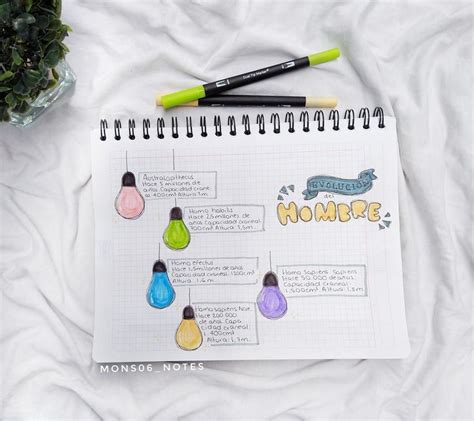 EVOLUCIÓN
del
HOMBRE
Australopithecus
Hace 5 millones de
años. Capacidad crane
al 400cm³ Altura: 1m.
Homo habilis
Hace 2.5 millones de
años. Capacidad craneal
700cm³ Altura: 1.5m
Homo erectus
Hace 1.5 millones de
años. Capacidad
craneal 1200cm³
Altura: 1.6m
Homo sapiens
Hace 200.000
de años. Capa
cidad craneal
Altura: 1.7m.
Homo Sapiens Sapiens
Hace 50.000 de años
Capacidad craneal
1.500cm³ Altura: 1.8m
MONS06_NOTES